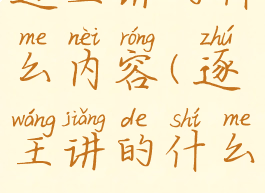 me nèi róng zhú
么内容(逐
wáng jiǎng de shí me
王讲的什么